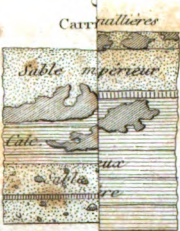 Carrquillières
Sable mpérieur
Calc.
eux
Sable
re